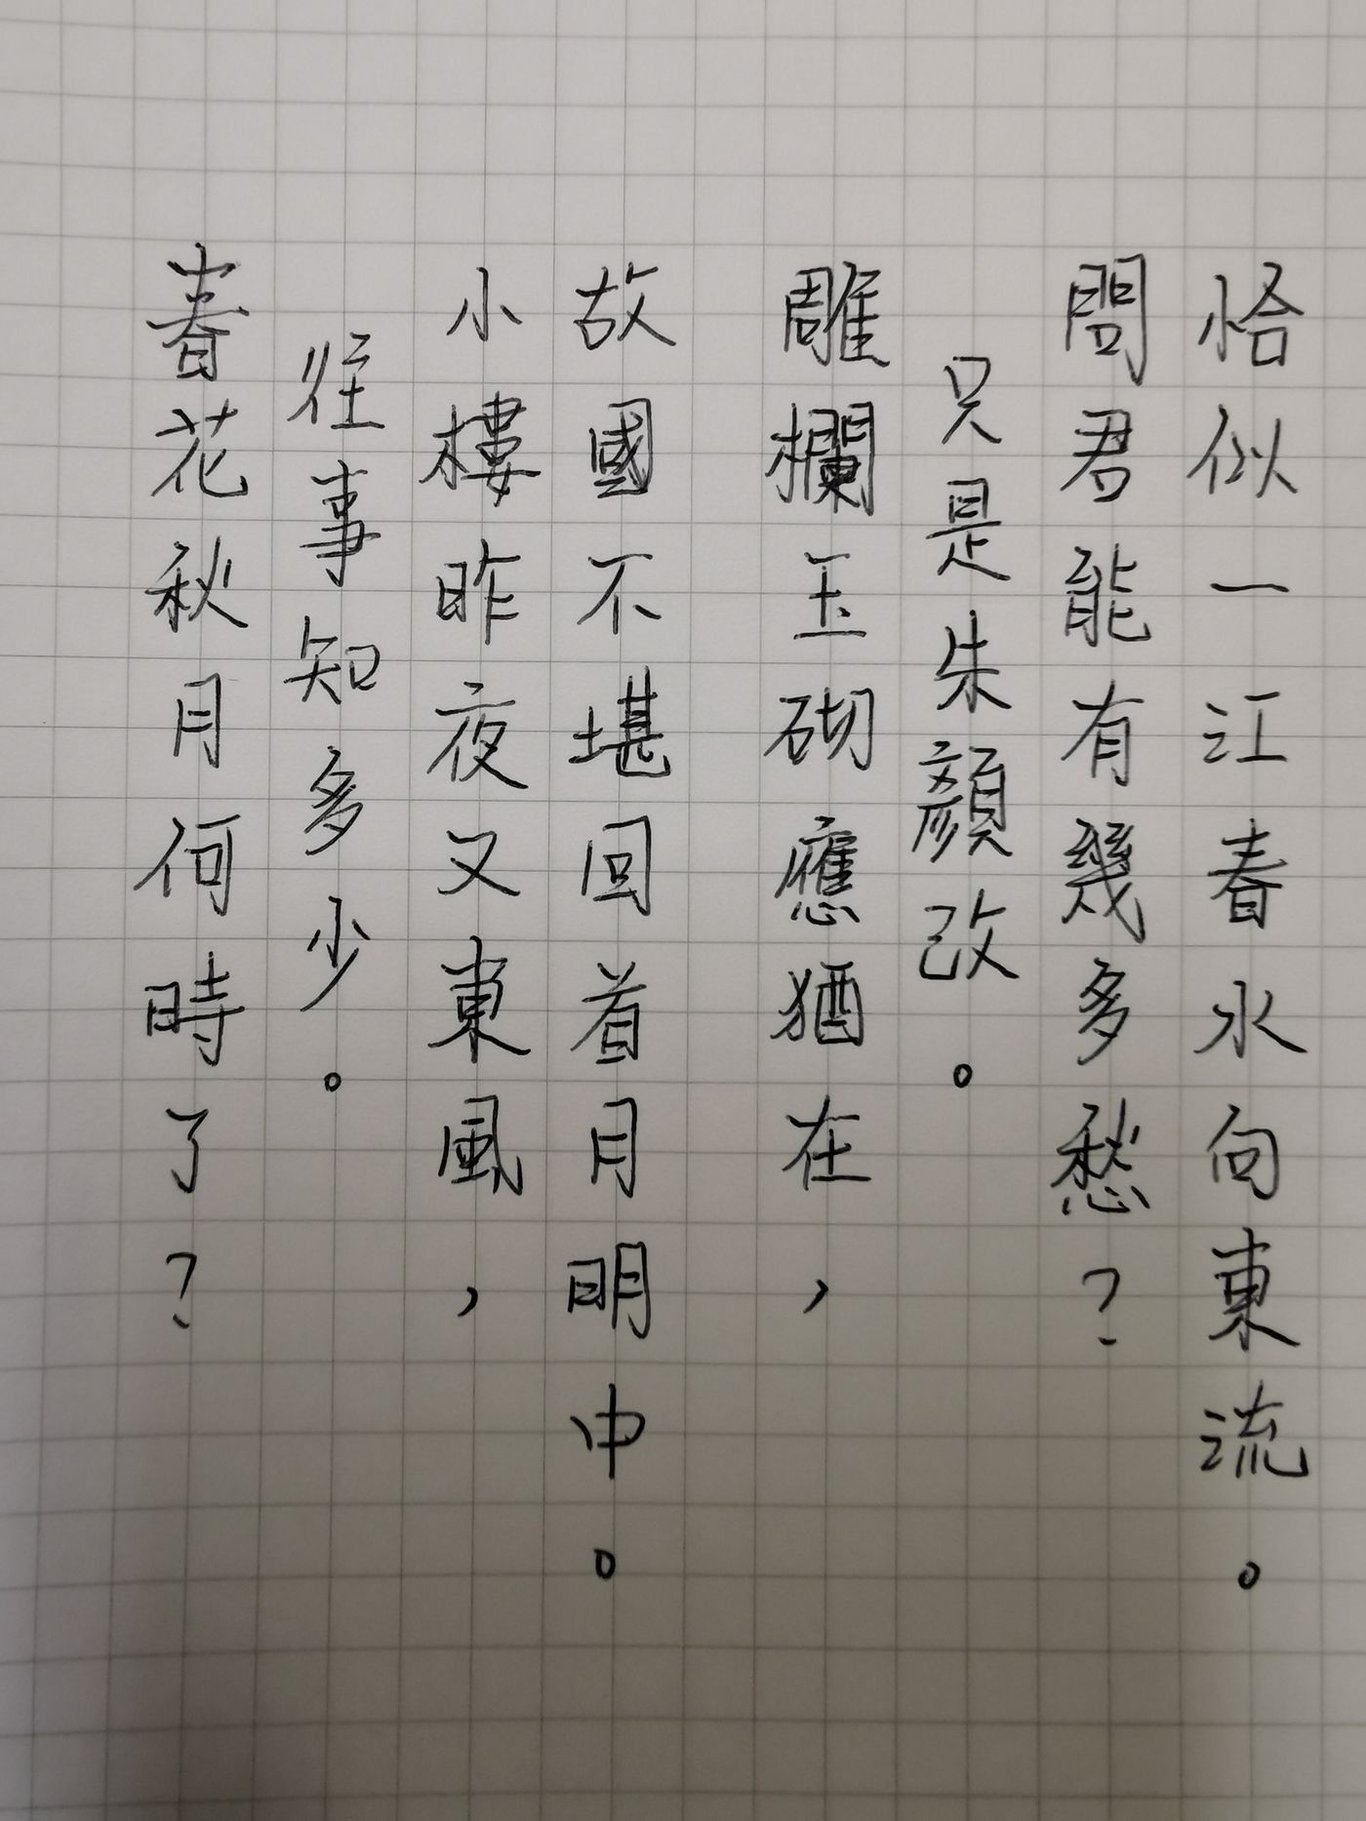 春花秋月何時了？
往事知多少。
小樓昨夜又東風，
故國不堪回首月明中。
雕欄玉砌應猶在，
只是朱顏改。
問君能有幾多愁？
恰似一江春水向東流。